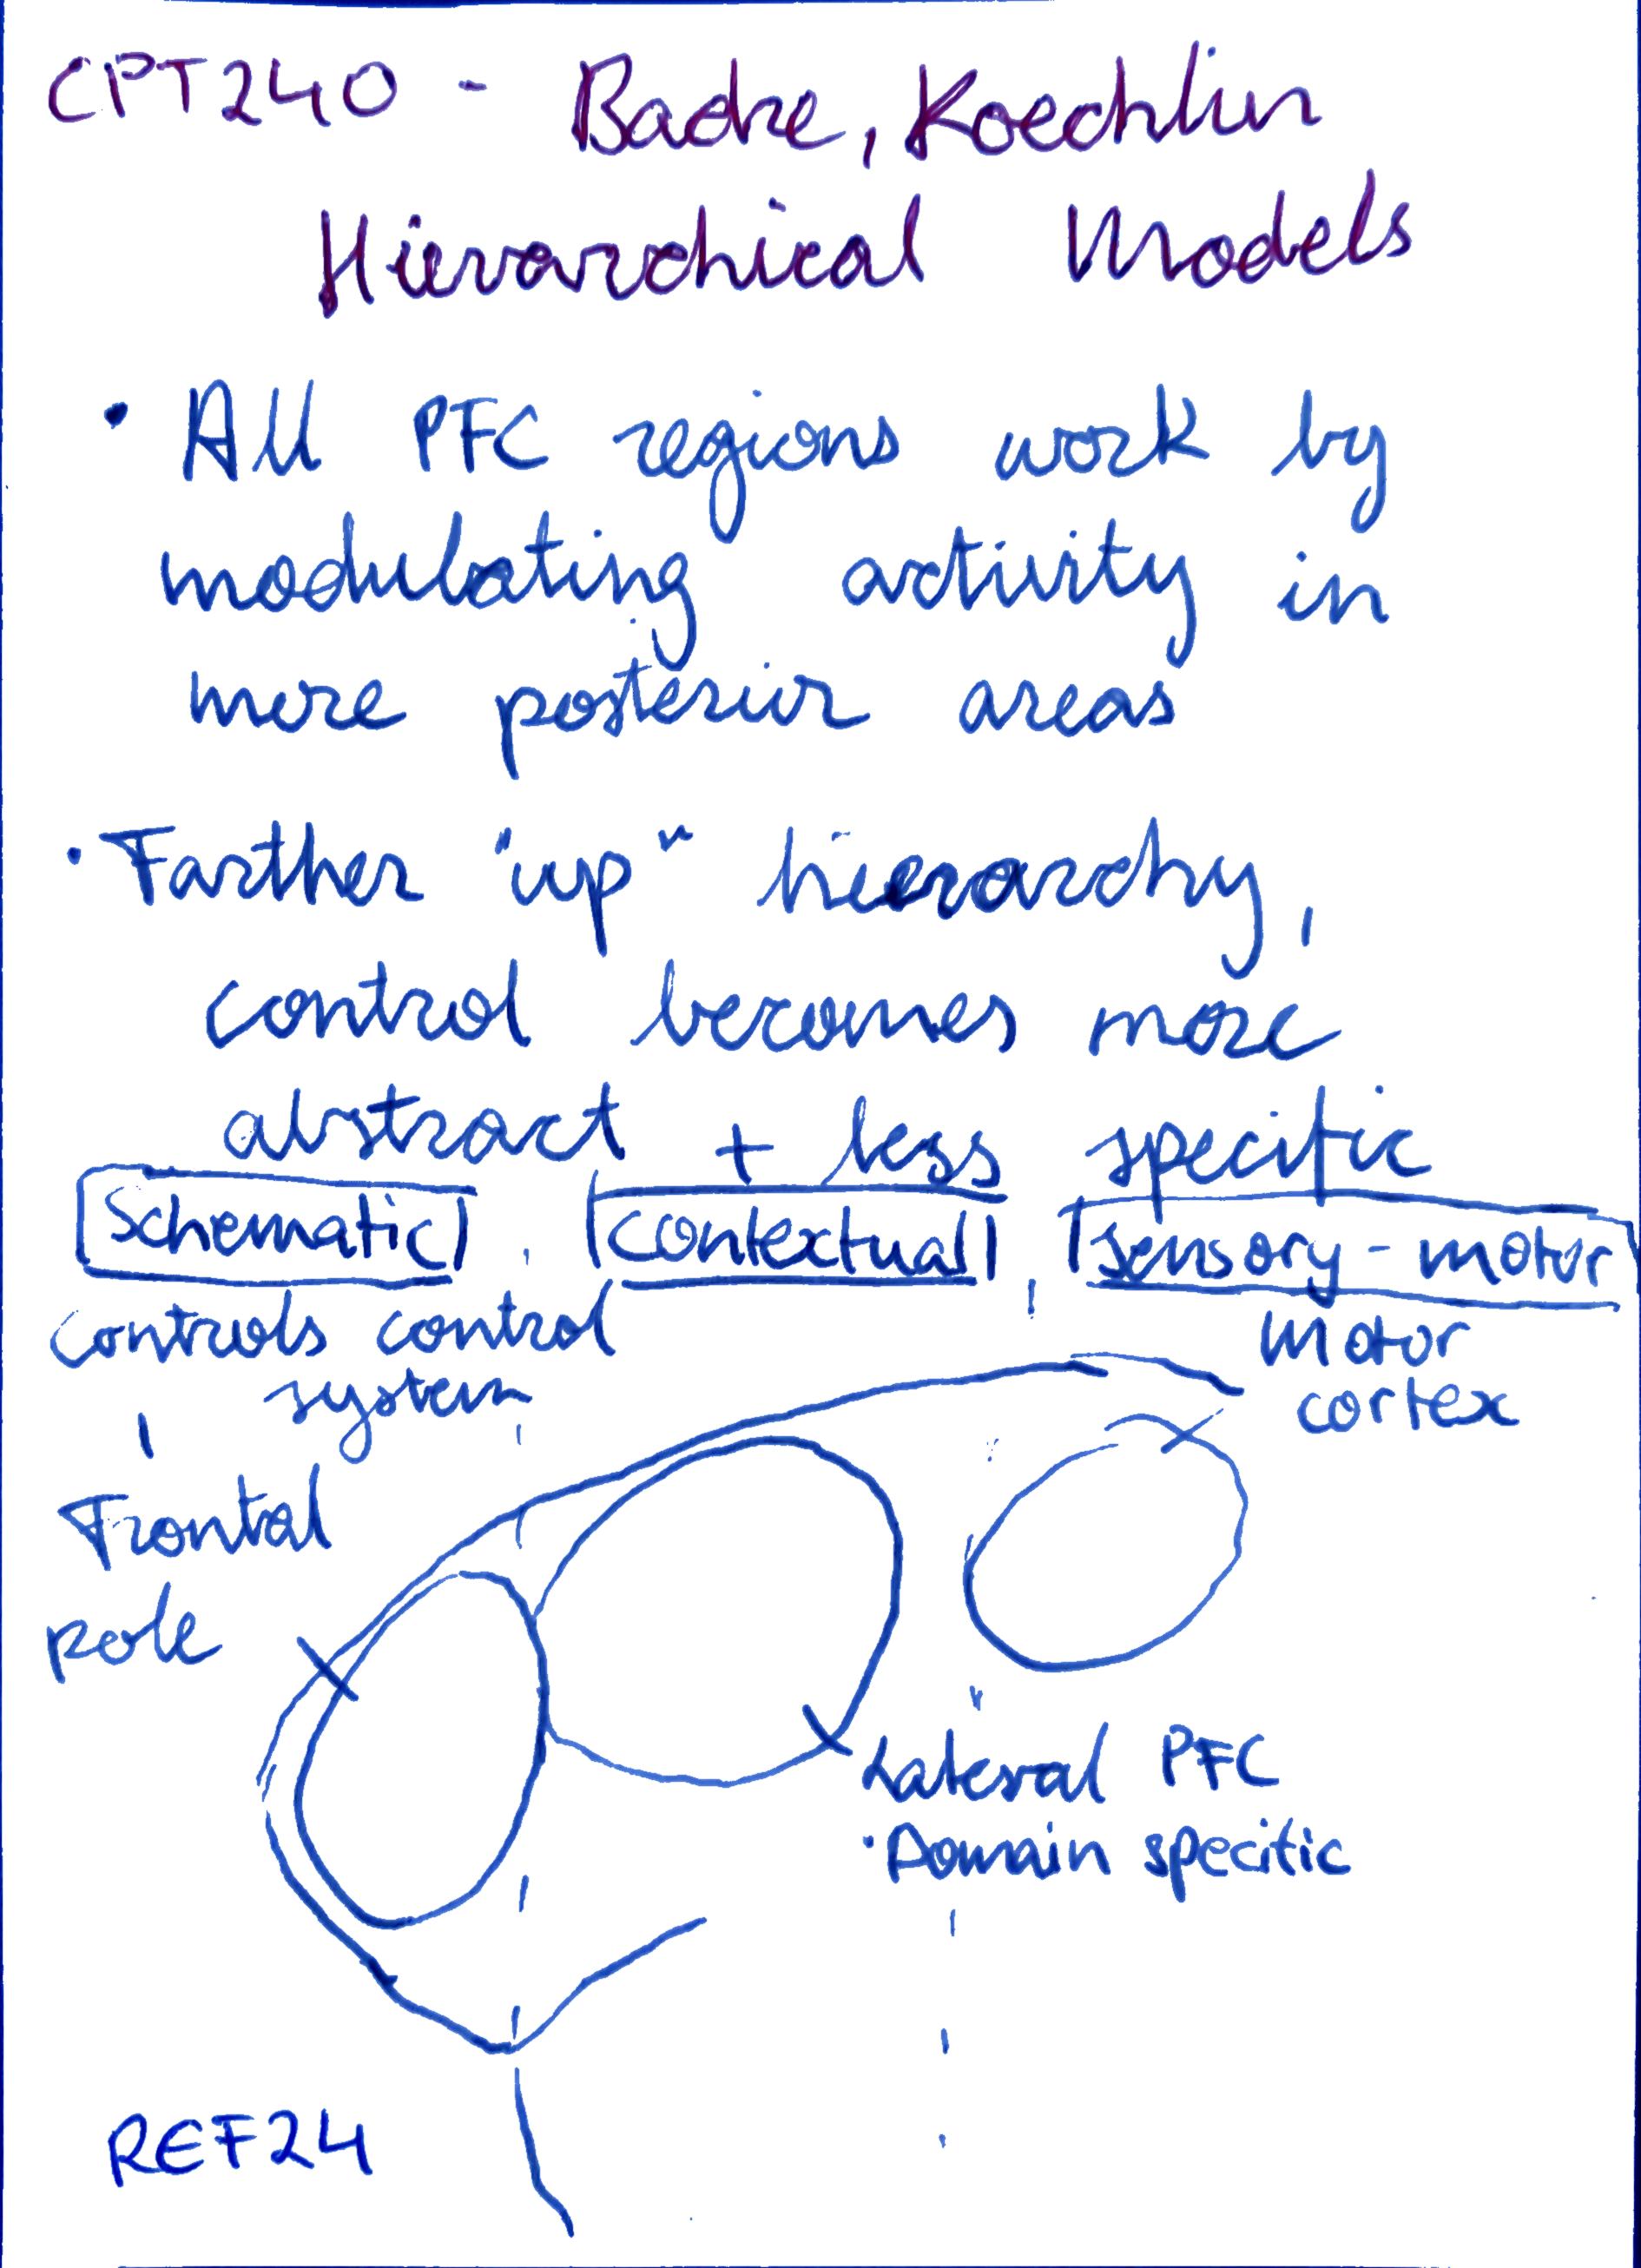 CPT240 - Badre, Koechlin
Hierarchical Models
• All PFC regions work by
modulating activity in
more posterior areas
• Farther "up" hierarchy,
control becomes more
abstract + less specific
Schematic Contextual Sensory-motor
controls control
system
Motor
cortex
Frontal
pole
Lateral PFC
• Domain specific
REF24